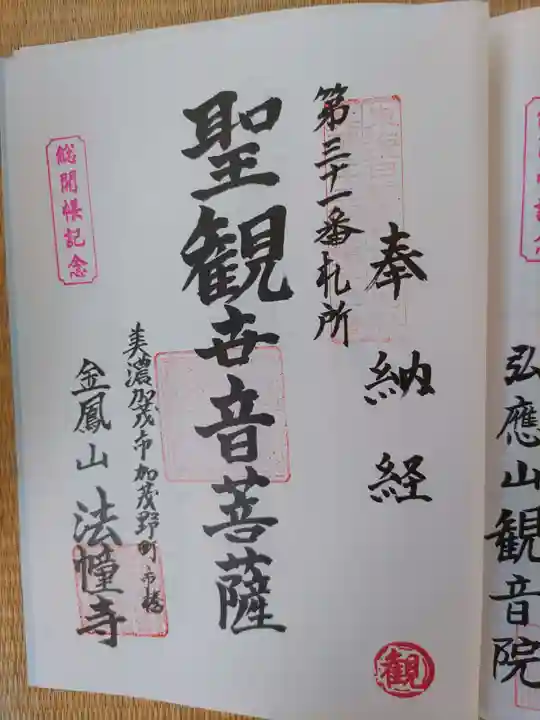 奉納経
第三十一番札所
聖観世音菩薩
美濃加茂市加茂野町市橋
金鳳山 法幢寺
総開帳記念
観
弘應山観音院